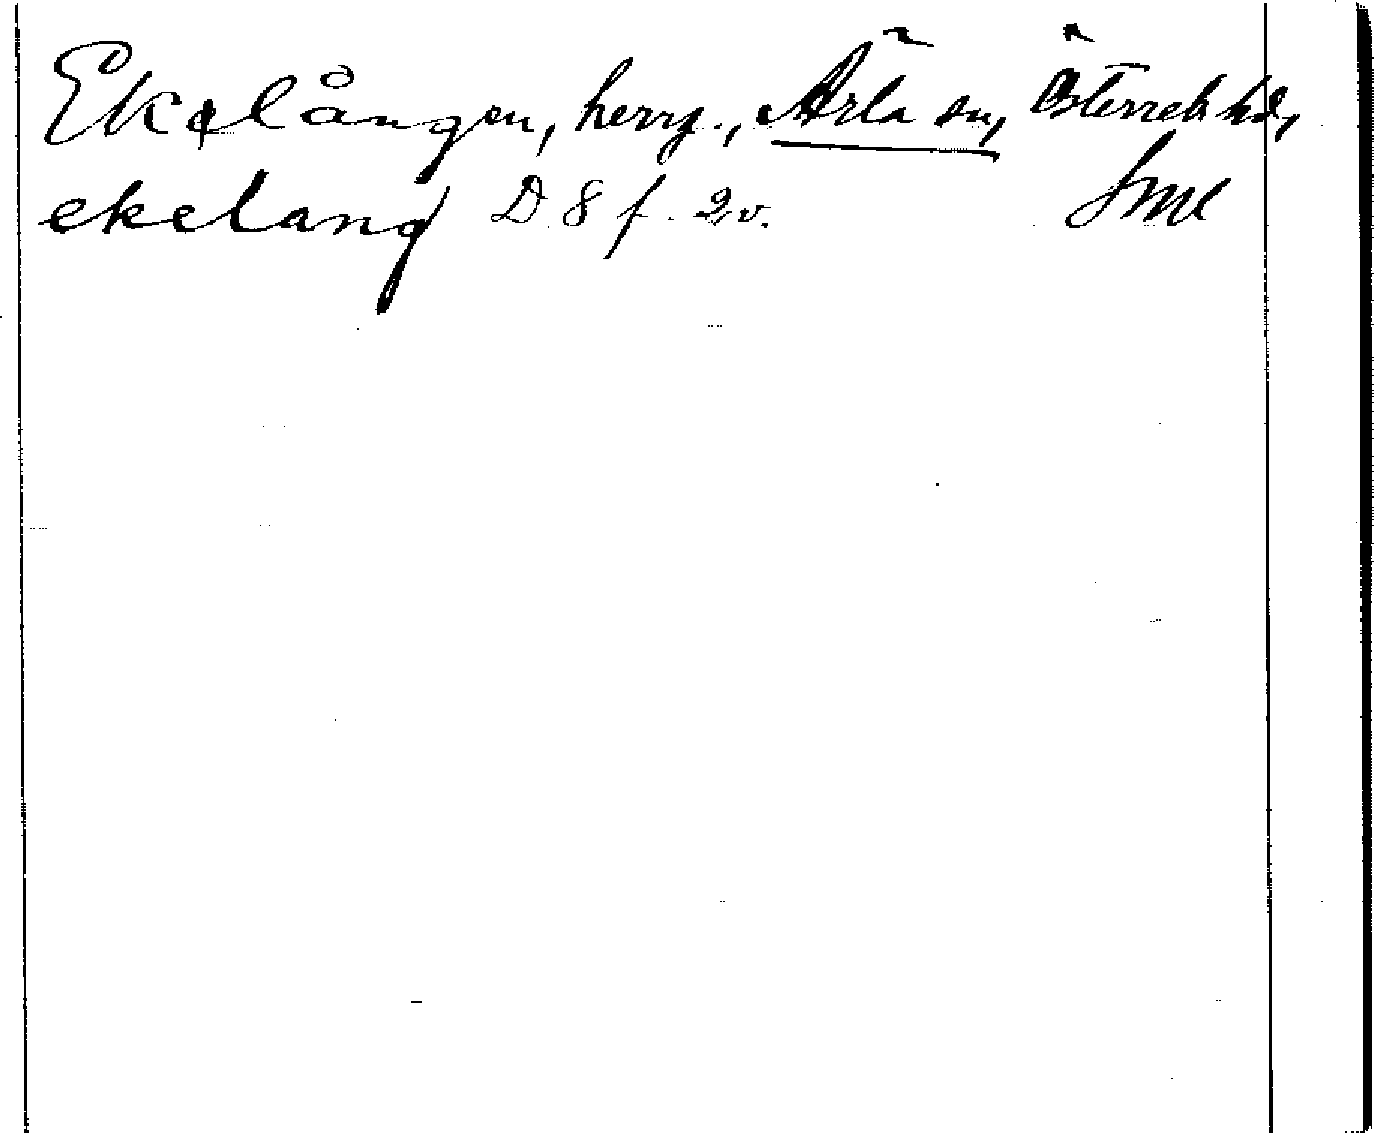 Ekelången, herrg., Ärla sn, Österrek hd,
ekelang D 8 f. 2v. Sml